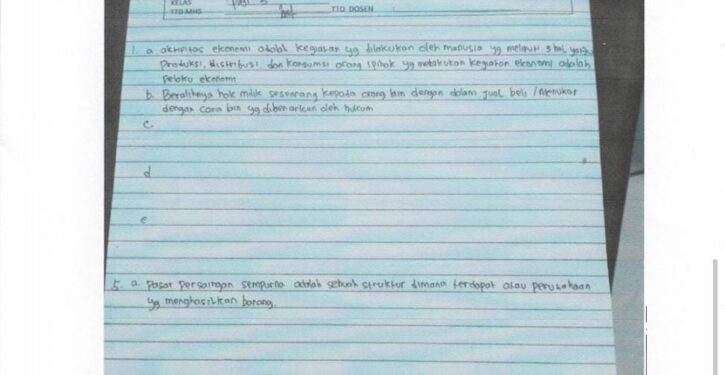 KELAS Pagi 3
TTD MHS TTD DOSEN :
1. a. aktifitas ekonomi adalah kegiatan yg dilakukan oleh manusia yg meliputi 3 hal, yaitu
Produksi, distribusi, dan konsumsi orang / pihak yg melakukan kegiatan ekonomi adalah
Pelaku ekonomi
b. Beralihnya hak milik seseorang kepada orang lain dengan dalam jual beli / menukar
dengan cara lain yg dibenarkan oleh hukum
c.
d
e
5. a. Pasar persaingan sempurna adalah sebuah struktur dimana terdapat atau perusahaan
yg menghasilkan barang.